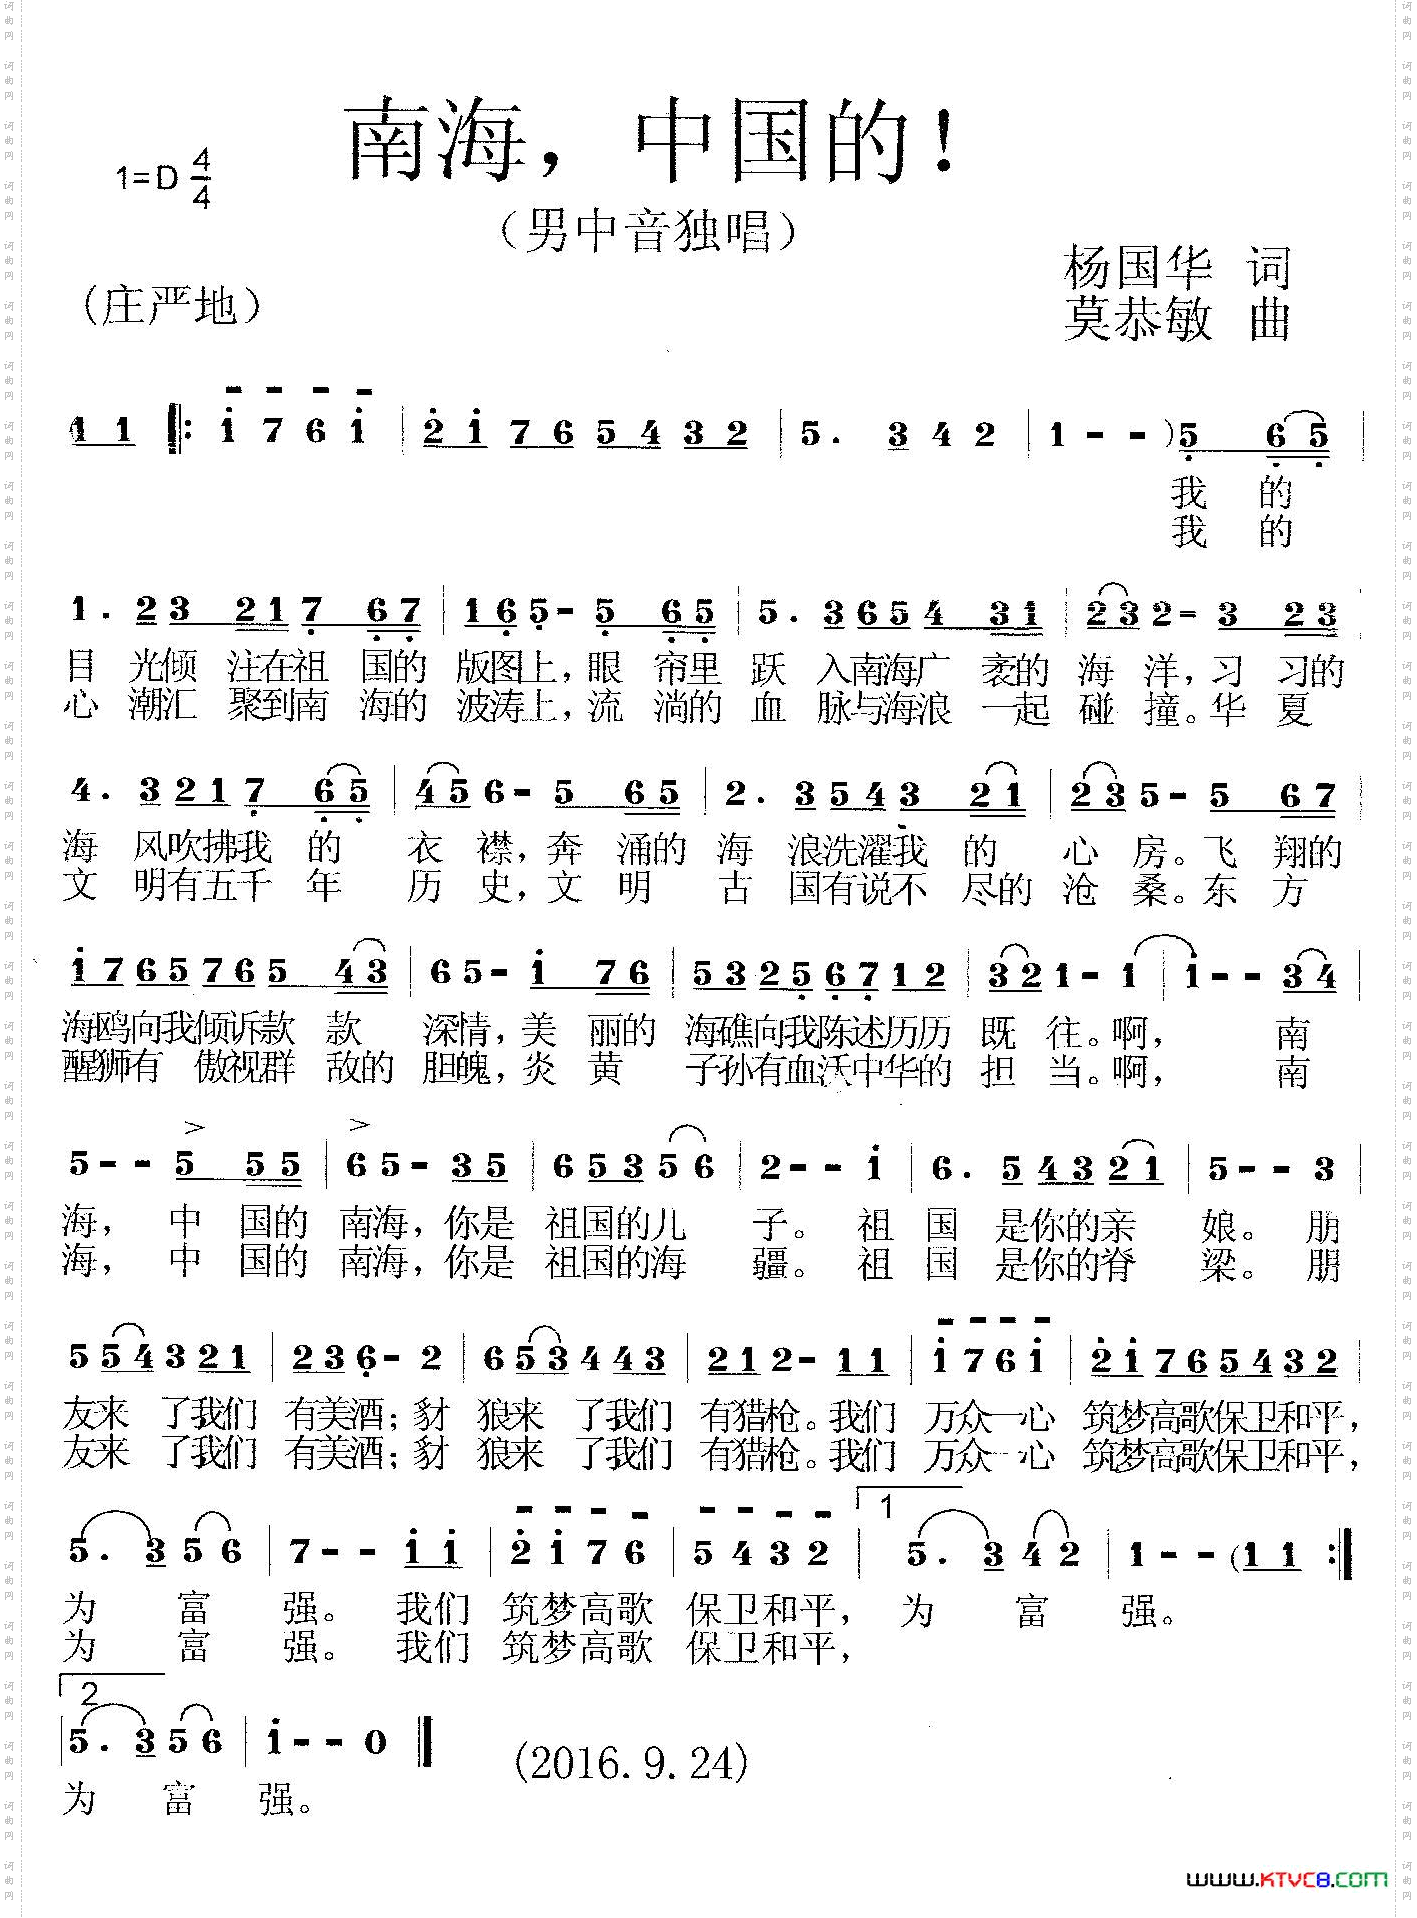 南海，中国的！
1=D 4/4
（男中音独唱）
杨国华 词
（庄严地）
莫恭敏 曲
1 1 ‖: i 7 6 i | 2 i 7 6 5 4 3 2 | 5 . 3 4 2 | 1 - - ) 5 6 5 |
我 的
我 的
1 . 2 3 2 1 7 6 7 | 1 6 5 - 5 6 5 | 5 . 3 6 5 4 3 1 | 2 3 2 - 3 2 3 |
目 光倾 注在祖 国的 版图上，眼 帘里 跃 入南海广 袤的 海 洋，习 习的
心 潮汇 聚到南 海的 波涛上，流 淌的 血 脉与海浪 一起 碰 撞。华 夏
4 . 3 2 1 7 6 5 | 4 5 6 - 5 6 5 | 2 . 3 5 4 3 2 1 | 2 3 5 - 5 6 7 |
海 风吹拂我 的 衣 襟，奔 涌的 海 浪洗濯我 的 心 房。飞 翔的
文 明有五千 年 历 史，文 明 古 国有说不 尽的 沧 桑。东 方
i 7 6 5 7 6 5 4 3 | 6 5 - i 7 6 | 5 3 2 5 6 7 1 2 | 3 2 1 - 1 | i - - 3 4 |
海鸥向我倾诉款 款 深情，美 丽的 海礁向我陈述历历 既 往。啊， 南
醒狮有 傲视群 敌的 胆魄，炎 黄 子孙有血沃中华的 担 当。啊， 南
5 - - 5 5 5 | 6 5 - 3 5 | 6 5 3 5 6 | 2 - - i | 6 . 5 4 3 2 1 | 5 - - 3 |
海， 中 国的 南海，你是 祖国的儿 子。 祖 国 是你的亲 娘。 朋
海， 中 国的 南海，你是 祖国的海 疆。 祖 国 是你的脊 梁。 朋
5 5 4 3 2 1 | 2 3 6 - 2 | 6 5 3 4 4 3 | 2 1 2 - 1 1 | i 7 6 i | 2 i 7 6 5 4 3 2 |
友来 了我们 有美酒；豺 狼来 了我们 有猎枪。我们 万众一心 筑梦高歌保卫和平，
友来 了我们 有美酒；豺 狼来 了我们 有猎枪。我们 万众一心 筑梦高歌保卫和平，
1
5 . 3 5 6 | 7 - - i i | 2 i 7 6 | 5 4 3 2 | 5 . 3 4 2 | 1 - - ( 1 1 :‖
为 富 强。 我们 筑梦高歌 保卫和平， 为 富 强。
为 富 强。 我们 筑梦高歌 保卫和平，
2
5 . 3 5 6 | i - - 0 ‖
(2016.9.24)
为 富 强。
www.KTVC8.com